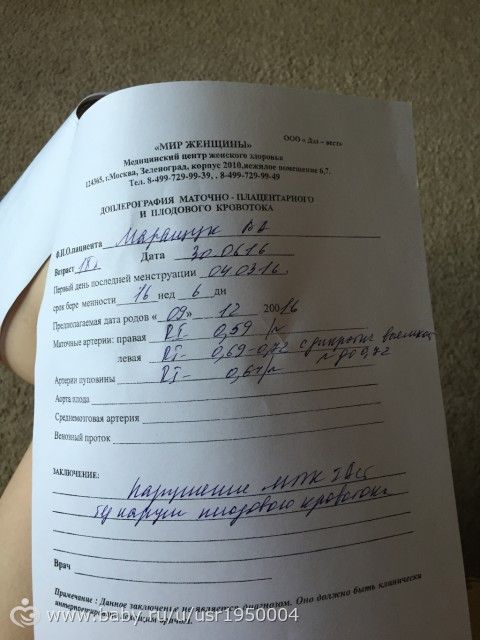 ООО « Даз – вест»
«МИР ЖЕНЩИНЫ»
Медицинский центр женского здоровья
124365, г.Москва, Зеленоград, корпус 2010,нежилое помещение 6,7.
Тел. 8-499-729-99-39, , 8-499-729-99-49
ДОПЛЕРОГРАФИЯ МАТОЧНО - ПЛАЦЕНТАРНОГО
И ПЛОДОВОГО КРОВОТОКА
Ф.И.О.пациента Маращук ВА
Возраст Дата 30.06.16
Первый день последней менструации 04.03.16.
срок бере менности 16 нед 6 дн
Предполагаемая дата родов « 09 » 12 200 16
Маточные артерии: правая RI- 0,59 N
левая RI- 0,69-0,72 с дикротич выемкой
Артерии пуповины RI- 0,64 N до 0,42
Аорта плода
Среднемозговая артерия
Венозный проток
ЗАКЛЮЧЕНИЕ:
Нарушение МПК
плодового кровотока
Врач
Примечание : Данное заключение не является диагнозом. Оно должно быть клинически
интерпретировано врачом.
www.baby.ru/u/usr1950004